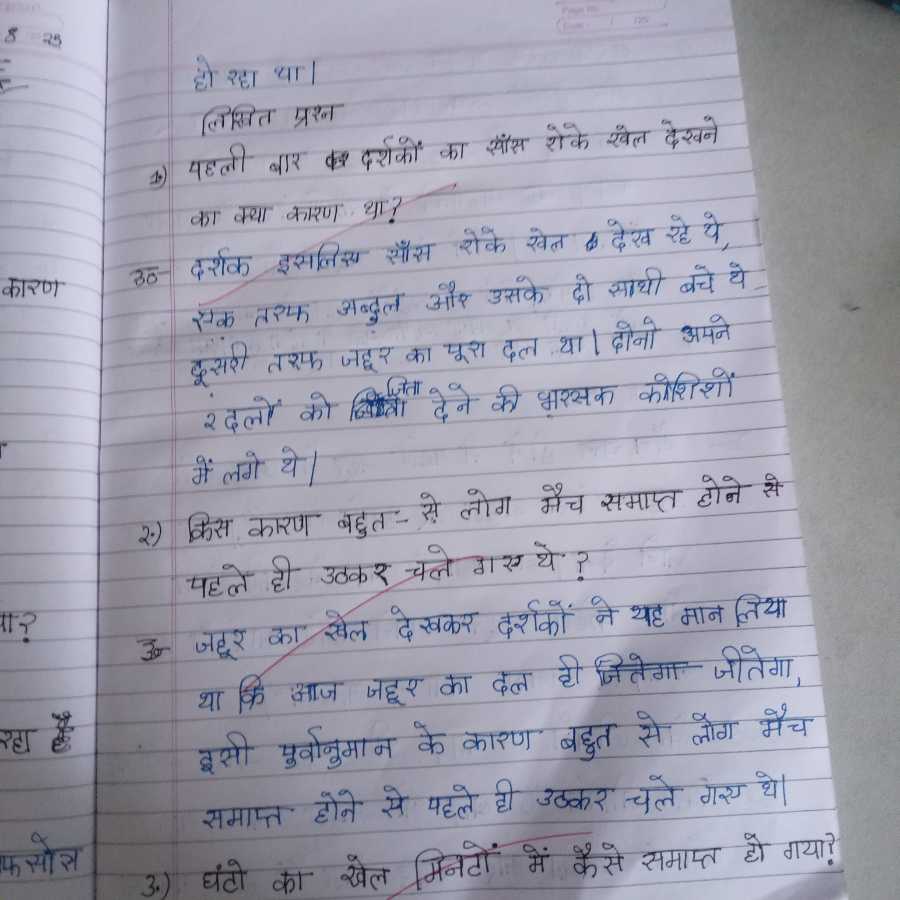 8 25
हो रहा था।
लिखित प्रश्न
1) पहली बार दर्शकों का साँस रोके खेल देखने
का क्या कारण था?
उ0- दर्शक इसलिए साँस रोके खेल देख रहे थे,
कारण
एक तरफ अब्दुल और उसके दो साथी बचे थे
दूसरी तरफ जहूर का पूरा दल था। दोनो अपने
२ दलों को जिता देने की भरसक कोशिशों
में लगे थे।
२.) किस कारण बहुत-से लोग मैच समाप्त होने से
पहले ही उठकर चले गए थे?
उ- जहूर का खेल देखकर दर्शकों ने यह मान लिया
था कि आज जहूर का दल ही जितेगा जीतेगा,
रहा है
इसी पुर्वानुमान के कारण बहुत से लोग मैच
समाप्त होने से पहले ही उठकर चले गए थे।
3.) घंटो का खेल मिनटों में कैसे समाप्त हो गया?